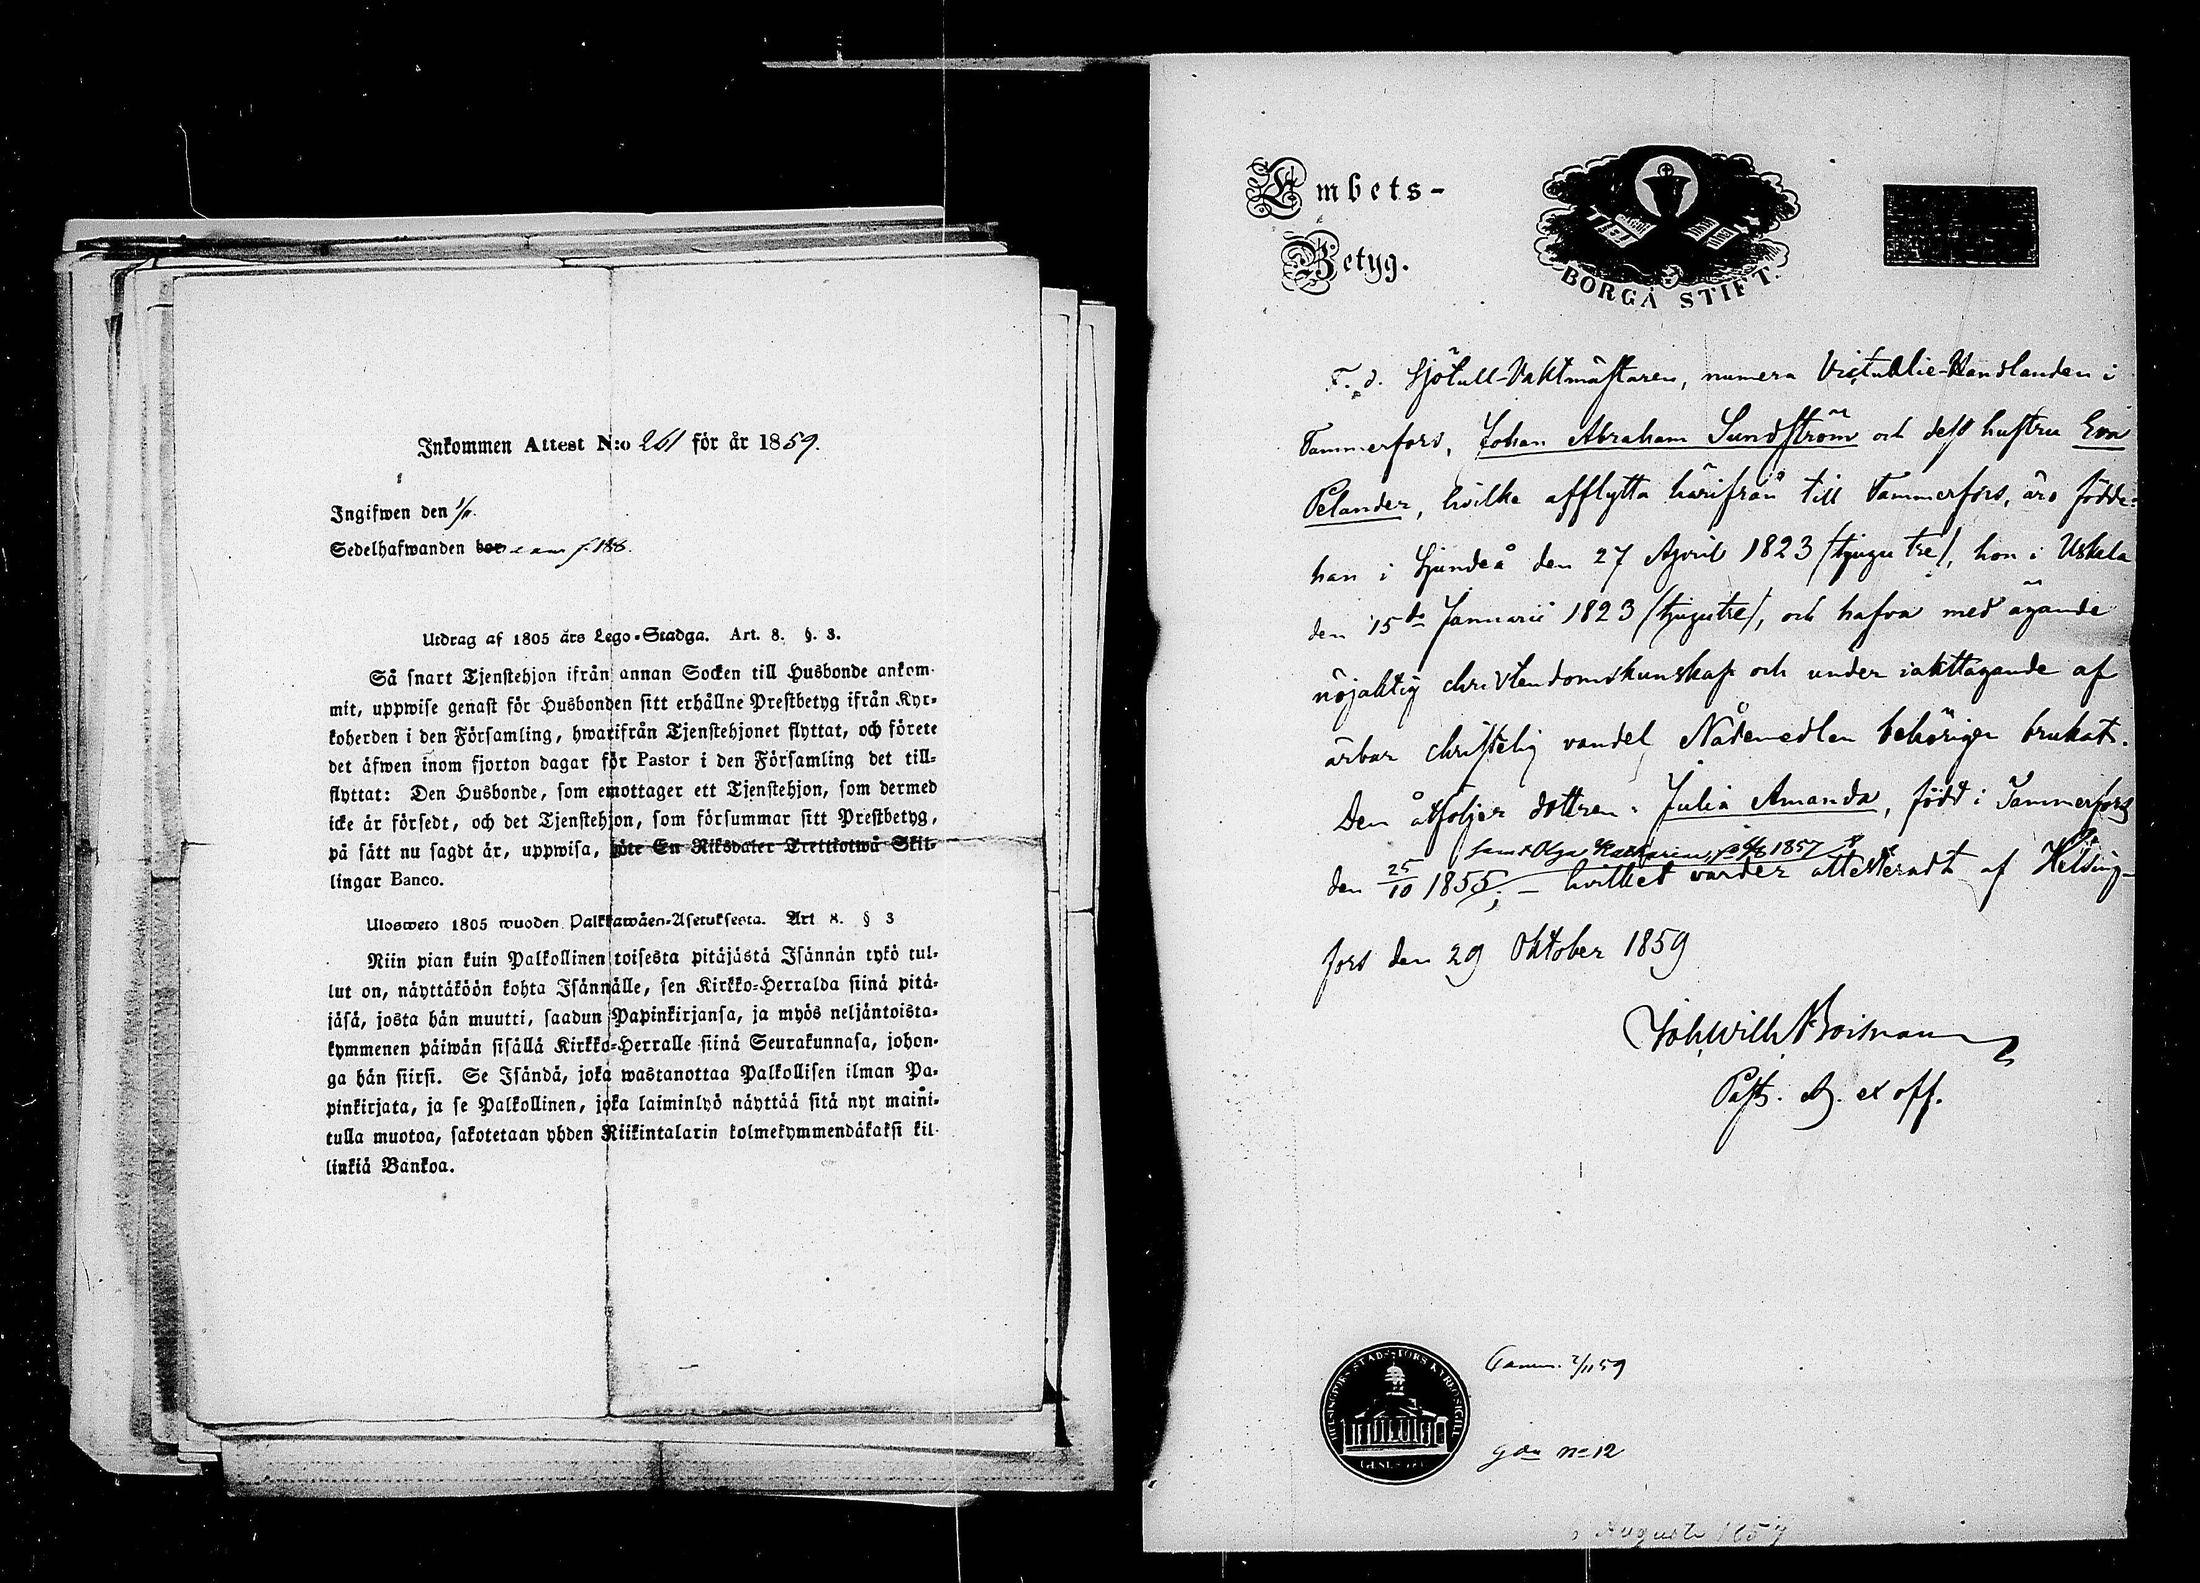 Inkommen Attest N:o 261 för år 1859.
Ingifwen den 1/11.
Sedelhafwanden bor
Utdrag af 1805 års Lego-Stadga. Art. 8. §. 3.
Så snart Tjenstehjon ifrån annan Socken till Husbonde ankom-
mit, uppwise genast för Husbonden sitt erhållne Prestbetyg ifrån Kyr-
koherden i den Församling, hwarifrån Tjenstehjonet flyttat, och förete
det äfwen inom fjorton dagar för Pastor i den Församling det till-
flyttat: Den Husbonde, som emottager ett Tjenstehjon, som dermed
icke är försedt, och det Tjenstehjon, som försummar sitt Prestbetyg,
på sätt nu sagdt är, uppwisa, böte En Riksdaler Trettiotwå Skil-
lingar Banco.
Ulosweto 1805 wuoden Palkkawäen-Asetuksesta. Art 8. § 3
Niin pian kuin Palkollinen toisesta pitäjästä Isännän tykö tul-
lut on, näyttäköön kohta Isännälle, sen Kirkko-Herralda siinä pitä-
jäsä, josta hän muutti, saadun Papinkirjansa, ja myös neljäntoista-
kymmenen päiwän sisällä Kirkko-Herralle siinä Seurakunnasa, johon-
ga hän siirsi. Se Isändä, joka wastanottaa Palkollisen ilman Pa-
pinkirjata, ja se Palkollinen, joka laiminlyö näyttää sitä nyt maini-
tulla muotoa, sakotetaan yhden Riikintalarin kolmekymmendäkaksi kil-
linkiä Bankoa.
Embets-
Betyg.
BORGÅ STIFT.
F. d. Sjötull-Vaktmästaren, numera Victualie-Handlanden i
Tammerfors, Johan Abraham Sundström och dess hustru Eva
Pelander, hvilka afflytta härifrån till Tammerfors, äro födde:
han i Sjundeå den 27 April 1823 /tjugutre/, hon i Uskela
den 15de Januarii 1823 /tjugutre/, och hafva med ägande
nöjaktig christendomskunskap och under iakttagande af
ärbar christelig vandel Nådemedlen behörigen brukat.
Dem åtföljer dottren: Julia Amanda, född i Tammerfors
samt Olga Katharina, 1857
den 25/10 1855; – hvilket varder attesteradt af Helsing-
fors den 29 Oktober 1859
Joh. Wilh. Roisman
Past. Adj. ex off.
HELSINGFORS STADS KYRKOSIGILL
Tamm. 2/11 59
gdn No 12
Augusti 1857